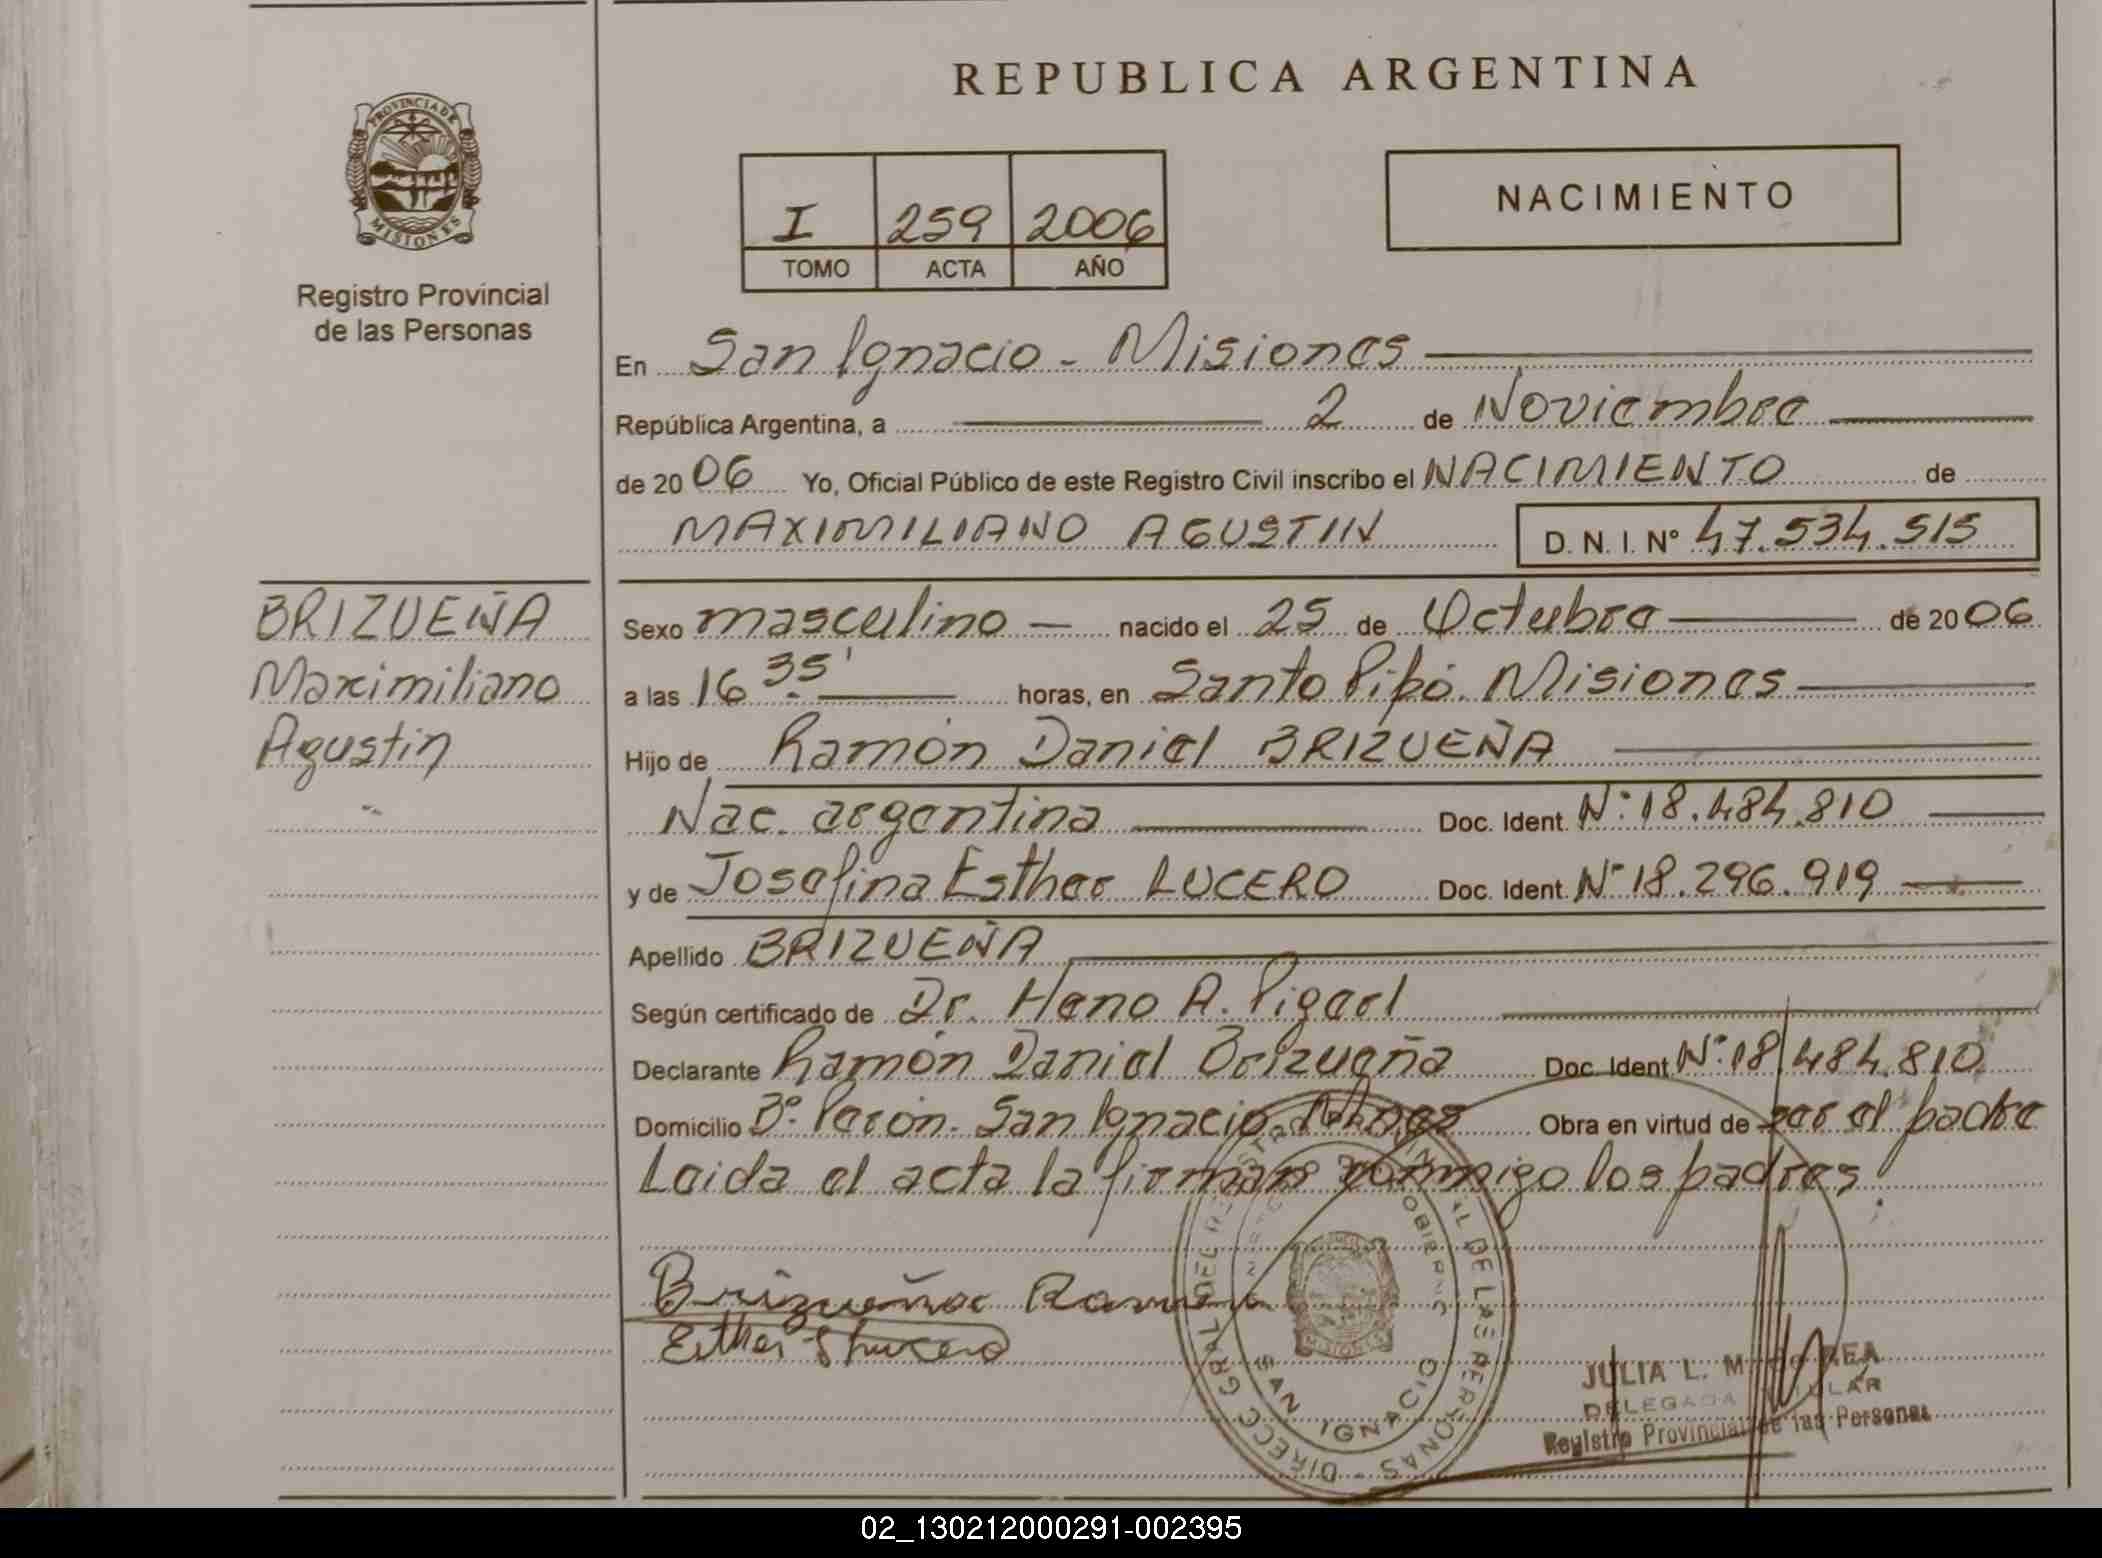 REPUBLICA ARGENTINA
PROVINCIA DE
MISIONES
Registro Provincial
de las Personas
I 259 2006
TOMO ACTA AÑO
NACIMIENTO
En San Ignacio - Misiones
República Argentina, a 2 de Noviembre
de 2006 Yo, Oficial Público de este Registro Civil inscribo el NACIMIENTO de
MAXIMILIANO AGUSTIN D. N. I. Nº 47.534.515
BRIZUEÑA
Maximiliano
Agustin
Sexo masculino — nacido el 25 de Octubre de 2006
a las 16 35' horas, en Santo Pipó. Misiones
Hijo de Ramón Daniel BRIZUEÑA
Nac. argentina Doc. Ident. Nº 18.484.810
y de Josefina Esther LUCERO Doc. Ident. Nº 18.296.919
Apellido BRIZUEÑA
Según certificado de Dr. Heno A.
Declarante Ramón Daniel Brizueña Doc. Ident Nº 18.484.810
Domicilio Bº Perón. San Ignacio. Mnes Obra en virtud de ser el padre
Leida el acta la firman conmigo los padres.
Brizueña Ramon
Esther Lucero
DIRECC GRAL DEL REGISTRO PROVINCIAL DE LAS PERSONAS
SAN IGNACIO
MISIONES
JULIA L. M.
DELEGADA TITULAR
Registro Provincial de las Personas
02_130212000291-002395